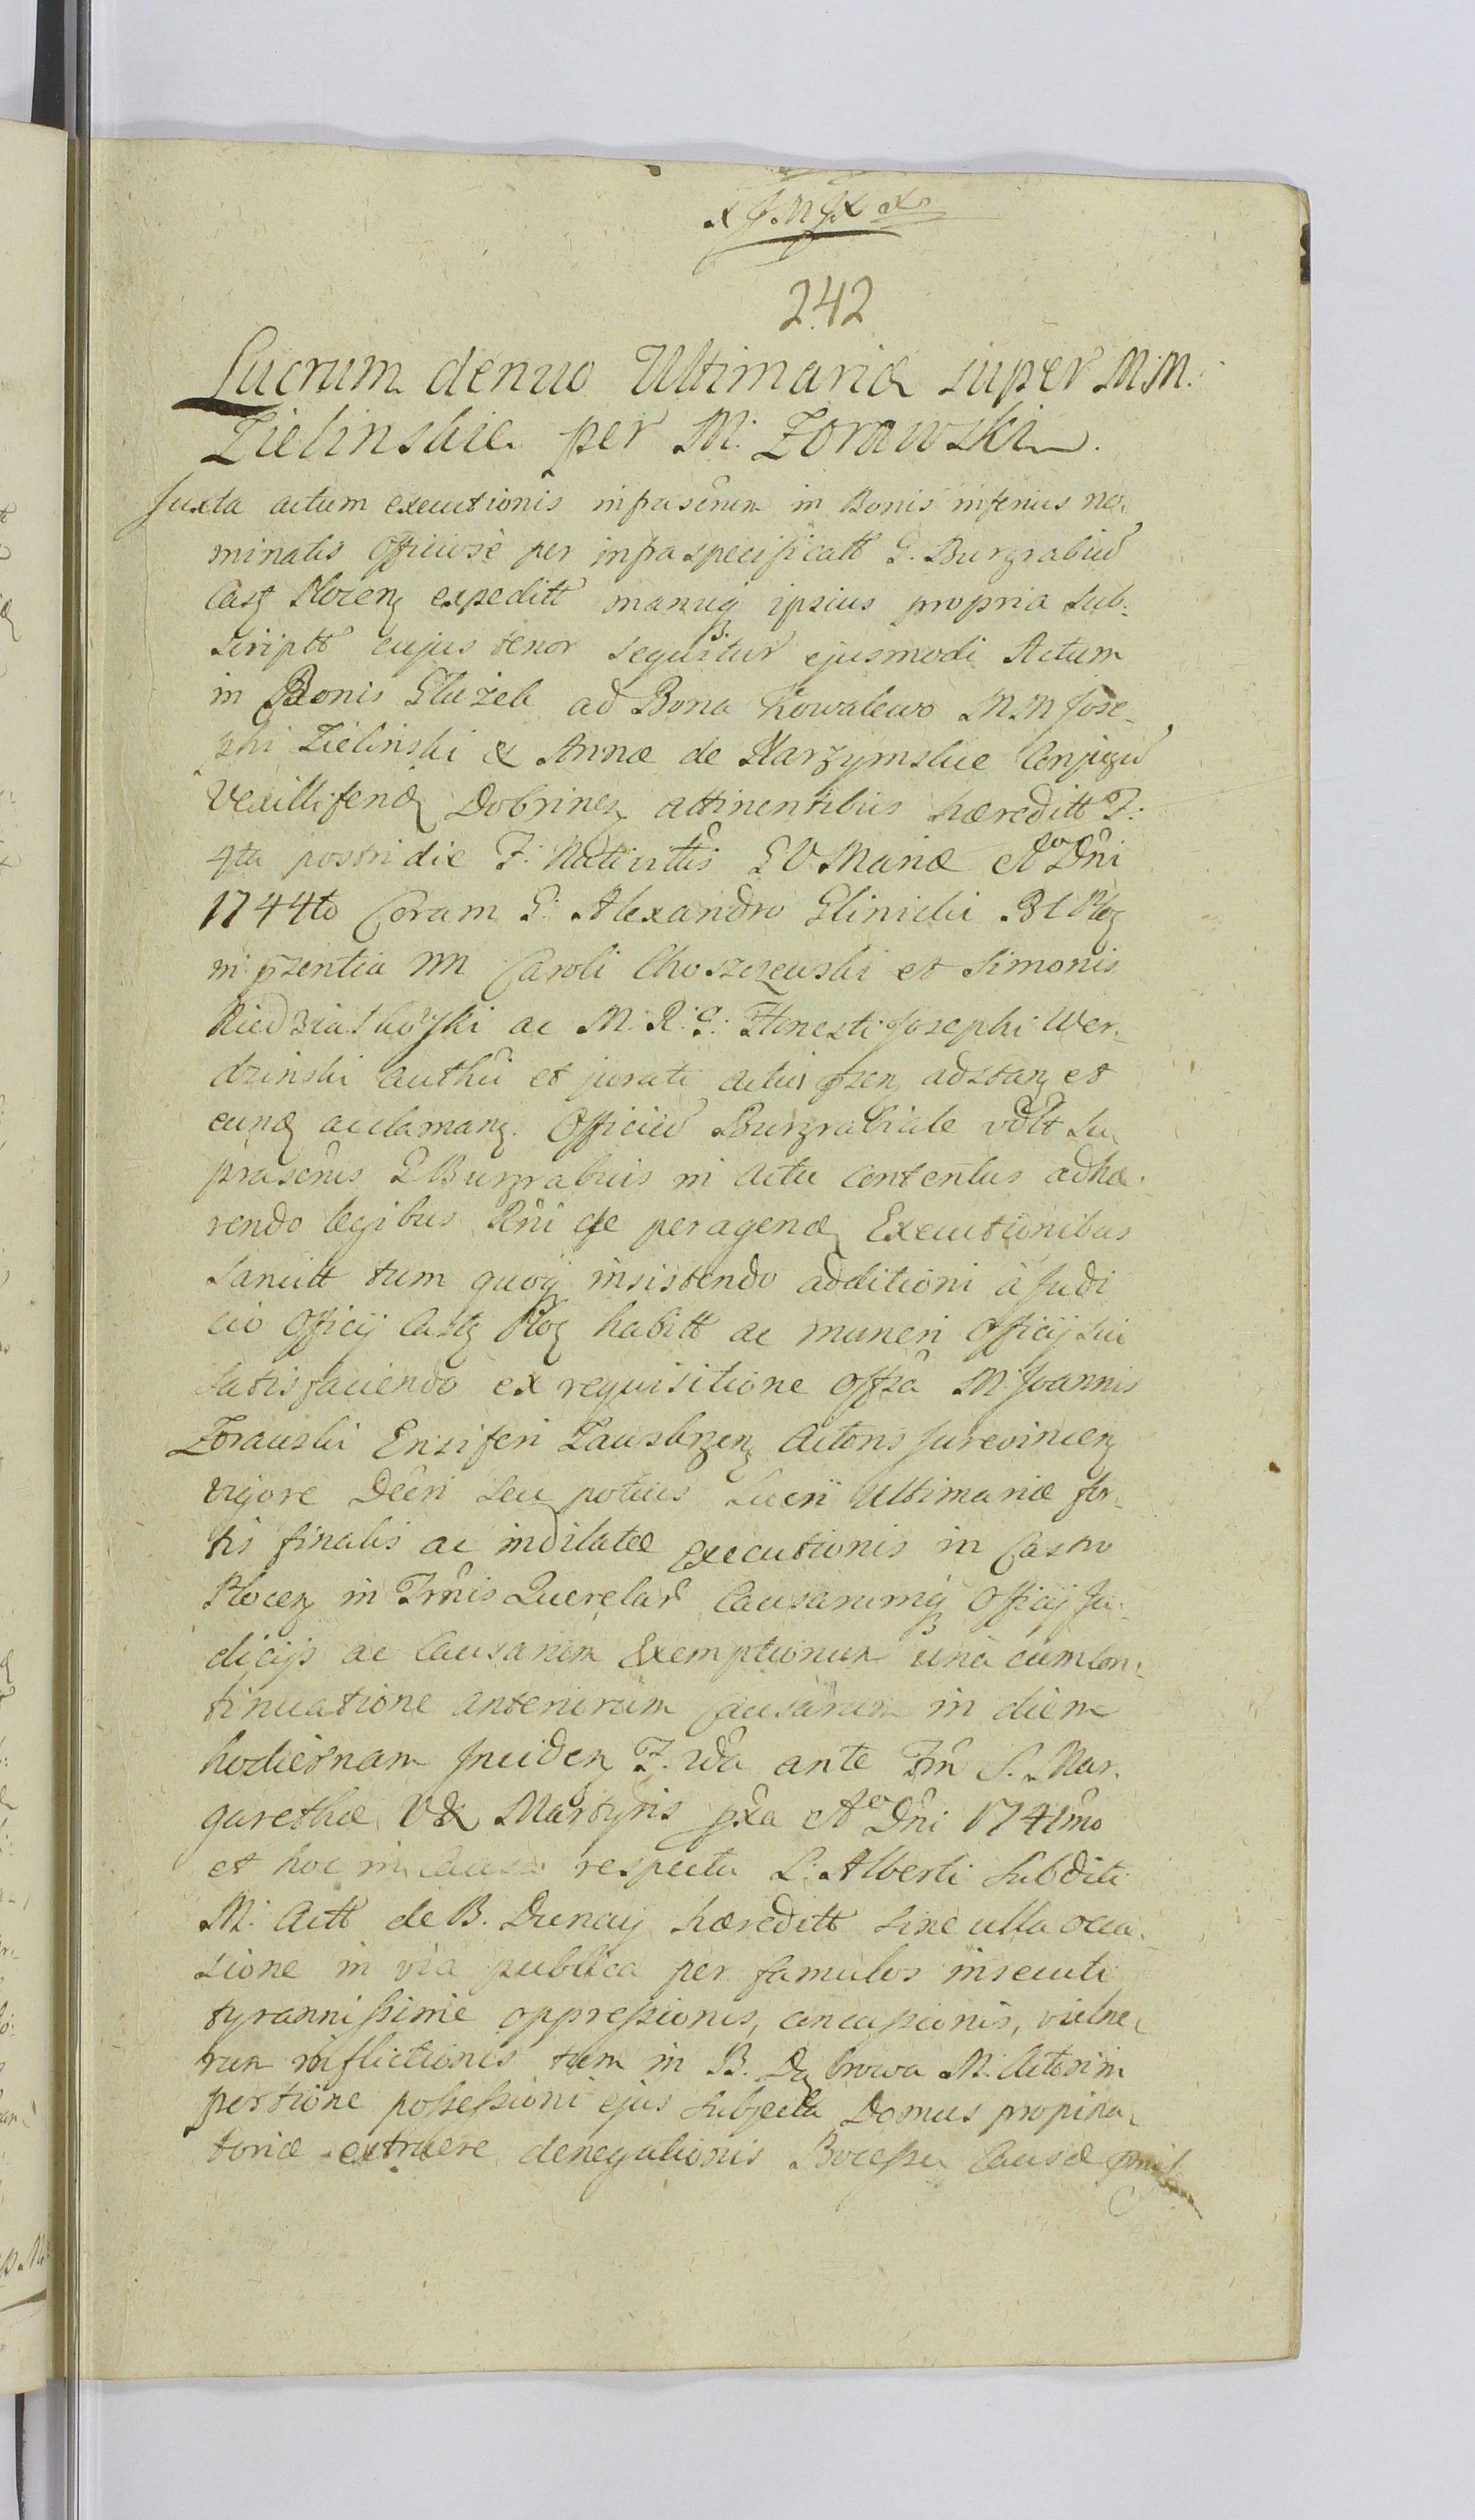 242
Lucrum denuo Ultimariæ super M.M.
Zielinskie per M: Zorawski.
Juxta actum executionis infrascrum in Bonis inferius no-
minatis Officiose per infra specificatt G. Burgrabiu
Castz Plocenz expeditt manuq ipsius propria sub-
scriptt cujus tenor sequitur ejusmodi Actum
in Bonis Gluzek ad Bona Kowalewo M.M Jose-
phi Zielinski & Annæ de Karzymskie Conjugu
Vexilliferoz Dobrinenz attinentibus hæreditt F:
4ta postridie F: Nativittis B V Mariæ Ao Dni
1744to Coram G: Alexandro Glinicki B C Ploz
in pzentia MM Caroli Choszczewski et Simonis
Niedzialkowski ac M. R: G: Honesti Josephi Wer-
dzinski authci et jurati actui pzenz adstanz et
eund acclamanz. Officiu Burgrabiale vdlt su-
prascrus G Burgrabius in actu contentus adhæ-
rendo legibus Rni de peragend Executionibus
sancitt tum quoq insistendo additioni à Judi
cio Officij Castz Ploz habitt ac muneri Officij sui
satisfaciendo ex requisitione offsa M. Joannis
Zorawski Ensiferi Zawskrzenz Actoris Jurevincenz
vigore Decri seu potius Lucri Ultimariæ for-
tis finalis ac indilatæ executionis in Castro
Plocenz in Trnis Querelar Causarumq Officij Ju-
dicijs ac Causarum Exemptionum unà cum con-
tinuatione anteriorum Causarum in diem
hodiernam Incidenz F. 2da ante Ftm S. Mar-
garethæ V & Martyris pxa Ao Dni 1741mo
et hoc in Causa respectu L: Alberti subditi
M: Actt de B. Dunay hæreditt sine ulla occa-
sione in via publica per famulos insecuti
tyrannissimè oppressionis, concussionis, vulne-
rum inflictionis tum in B. Dąbrowa M. Actori in
portione possessioni ejus subjecta Domus propina-
toriæ extruere denegationis Processu Causæ